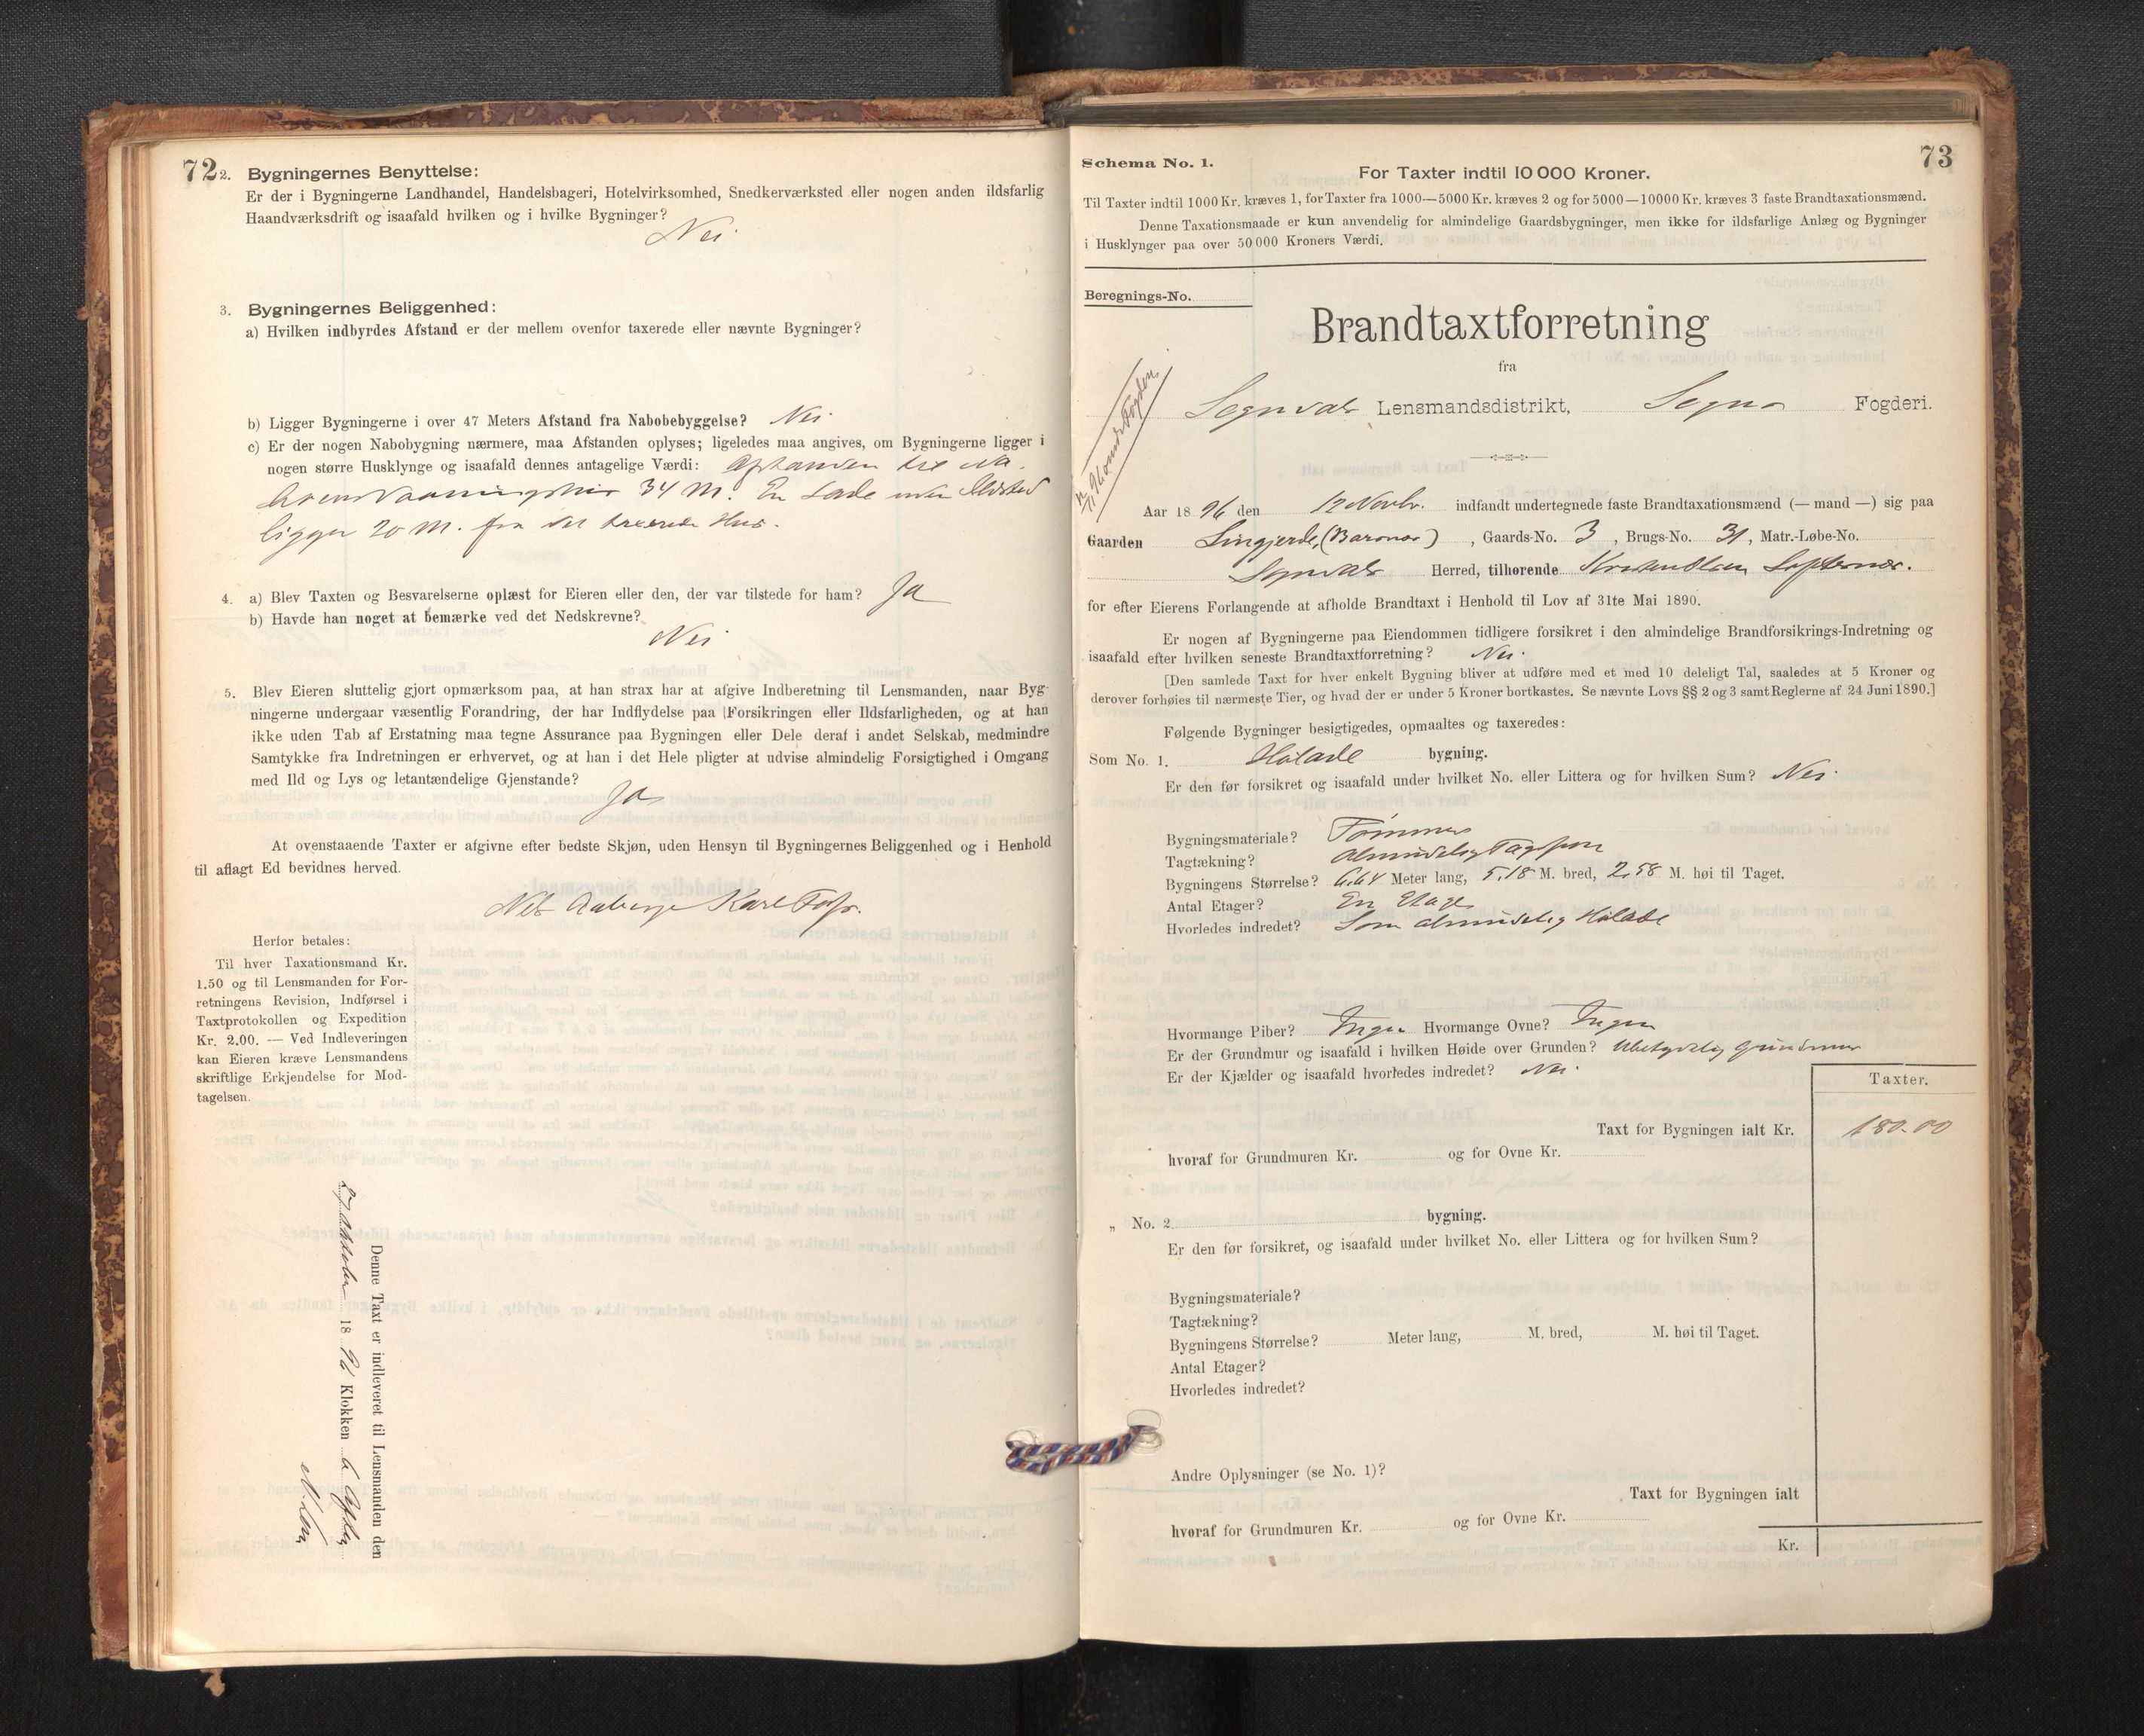 72
2. Bygningernes Benyttelse:
Er der i Bygningerne Landhandel, Handelsbageri, Hotelvirksomhed, Snedkerværksted eller nogen anden ildsfarlig
Haandværksdrift og isaafald hvilken og i hvilke Bygninger?
Nei.
3. Bygningernes Beliggenhed:
a) Hvilken indbyrdes Afstand er der mellem ovenfor taxerede eller nævnte Bygninger?
b) Ligger Bygningerne i over 47 Meters Afstand fra Nabobebyggelse? Nei
c) Er der nogen Nabobygning nærmere, maa Afstanden oplyses; ligeledes maa angives, om Bygningerne ligger i
nogen større Husklynge og isaafald dennes antagelige Værdi: Afstanden til
34 M. En Lade uden Ildsted
ligger 20 M. fra det Hus.
4. a) Blev Taxten og Besvarelserne oplæst for Eieren eller den, der var tilstede for ham? Ja
b) Havde han noget at bemærke ved det Nedskrevne?
Nei
5. Blev Eieren sluttelig gjort opmærksom paa, at han strax har at afgive Indberetning til Lensmanden, naar Byg-
ningerne undergaar væsentlig Forandring, der har Indflydelse paa Forsikringen eller Ildsfarligheden, og at han
ikke uden Tab af Erstatning maa tegne Assurance paa Bygningen eller Dele deraf i andet Selskab, medmindre
Samtykke fra Indretningen er erhvervet, og at han i det Hele pligter at udvise almindelig Forsigtighed i Omgang
med Ild og Lys og letantændelige Gjenstande?
Ja
At ovenstaaende Taxter er afgivne efter bedste Skjøn, uden Hensyn til Bygningernes Beliggenhed og i Henhold
til aflagt Ed bevidnes herved.
Nels Aaberge Karl
Herfor betales:
Til hver Taxationsmand Kr.
1.50 og til Lensmanden for For-
retningens Revision, Indførsel i
Taxtprotokollen og Expedition
Kr. 2.00. — Ved Indleveringen
kan Eieren kræve Lensmandens
skriftlige Erkjendelse for Mod-
tagelsen.
Denne Taxt er indleveret til Lensmanden den
Oktober 1896 Klokken 6
73
Schema No. 1.
For Taxter indtil 10 000 Kroner.
Til Taxter indtil 1000 Kr. kræves 1, for Taxter fra 1000—5000 Kr. kræves 2 og for 5000—10000 Kr. kræves 3 faste Brandtaxationsmænd.
Denne Taxationsmaade er kun anvendelig for almindelige Gaardsbygninger, men ikke for ildsfarlige Anlæg og Bygninger
i Husklynger paa over 50 000 Kroners Værdi.
Beregnings-No.
Brandtaxtforretning
fra
Sogndals Lensmandsdistrikt, Sogns Fogderi.
Aar 1896 den 12 Novbr. indfandt undertegnede faste Brandtaxationsmænd (— mand —) sig paa
Gaarden , Gaards-No. 3, Brugs-No. 31, Matr.-Løbe-No.
Sogndals Herred, tilhørende
for efter Eierens Forlangende at afholde Brandtaxt i Henhold til Lov af 31te Mai 1890.
Er nogen af Bygningerne paa Eiendommen tidligere forsikret i den almindelige Brandforsikrings-Indretning og
isaafald efter hvilken seneste Brandtaxtforretning? Nei.
[Den samlede Taxt for hver enkelt Bygning bliver at udføre med et med 10 deleligt Tal, saaledes at 5 Kroner og
derover forhøies til nærmeste Tier, og hvad der er under 5 Kroner bortkastes. Se nævnte Lovs §§ 2 og 3 samt Reglerne af 24 Juni 1890.]
Følgende Bygninger besigtigedes, opmaaltes og taxeredes:
Som No. 1. Hølade bygning.
Er den før forsikret og isaafald under hvilket No. eller Littera og for hvilken Sum? Nei.
Bygningsmateriale? Tømmer
Tagtækning? Almindelig Tagspon
Bygningens Størrelse? 6.64 Meter lang, 5.18 M. bred, 2.58 M. høi til Taget.
Antal Etager? En Etage
Hvorledes indredet? Som almindelig Hølade
Hvormange Piber? Ingen Hvormange Ovne? Ingen
Er der Grundmur og isaafald i hvilken Høide over Grunden? Ubetydelig Grundmur
Er der Kjælder og isaafald hvorledes indredet? Nei.
Taxter.
Taxt for Bygningen ialt Kr. 180.00
hvoraf for Grundmuren Kr. og for Ovne Kr.
„ No. 2 bygning.
Er den før forsikret, og isaafald under hvilket No. eller Littera og for hvilken Sum?
Bygningsmateriale?
Tagtækning?
Bygningens Størrelse? Meter lang, M. bred, M. høi til Taget.
Antal Etager?
Hvorledes indredet?
Andre Oplysninger (se No. 1)?
Taxt for Bygningen ialt
hvoraf for Grundmuren Kr. og for Ovne Kr.
Kr.